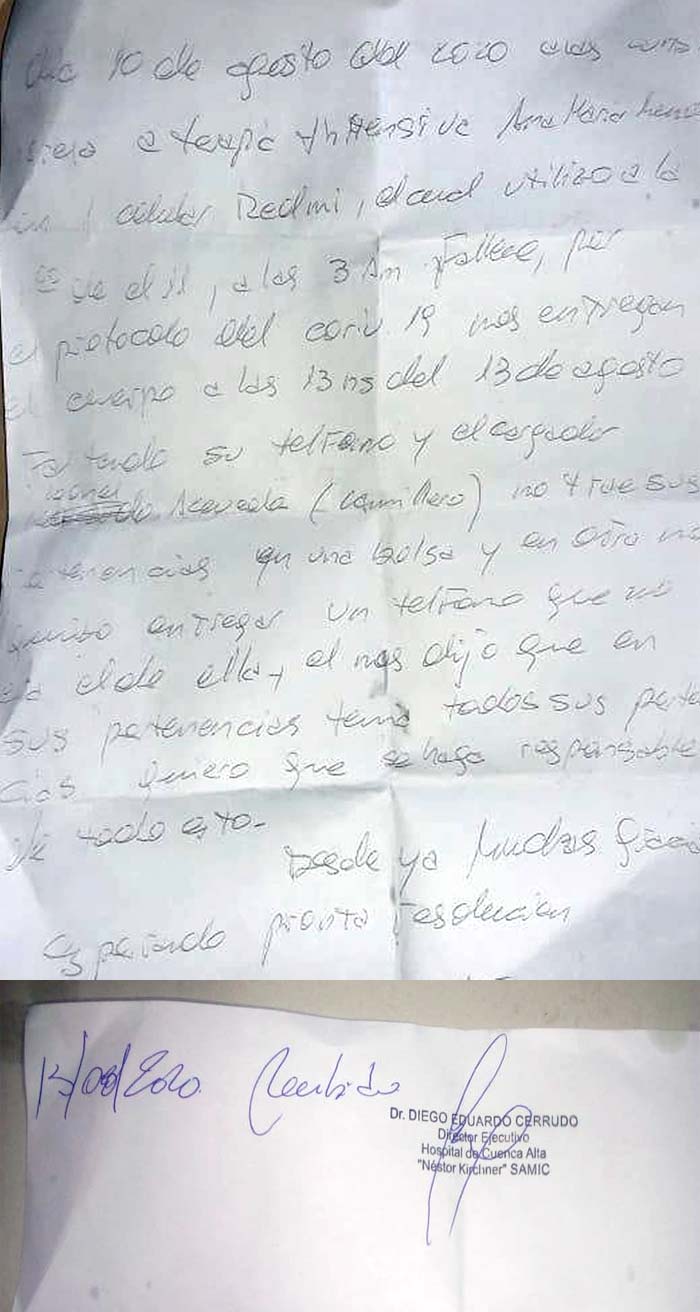 día 10 de agosto del 2020 a las
a terapia intensiva Ana Maria
1 celular Redmi, el cual utilizo a la
de el 11, a las 3 Am fallece, por
el protocolo del 19 nos entregan
el cuerpo a las 13 hs del 13 de agosto
Faltando su telfano y el cargador
Acevedo (camillero) no trae sus
pertenencias en una bolsa y en otro nos
quiso entregar un telfano que no
era el de ella, el nos dijo que en
sus pertenencias tenia todos sus perte
cias quiero que se haga responsable
de todo esto-
Desde ya Muchas graci
esperando pronta resolucion
13/08/2020. Recibido
Dr. DIEGO EDUARDO CERRUDO
Director Ejecutivo
Hospital de Cuenca Alta
"Néstor Kirchner" SAMIC